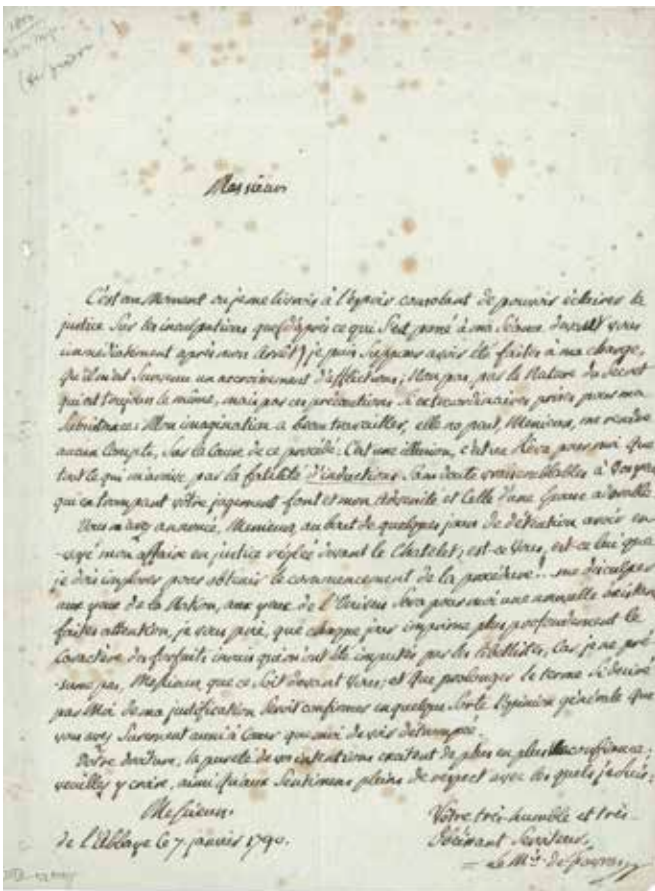 Messieurs
C'est au Moment où je me livrois à l'espoir consolant de pouvoir éclairer la
justice sur les inculpations que (d'après ce qui s'est passé à ma Séance devant vous
immédiatement après mon arrêt) je puis supposer avoir été faites à ma charge,
qu'il m'est survenu un accroissement d'afflictions; Non pas, par la Nature du Secret
qui est toujours le même, mais par ces précautions si extraordinaires prises pour ma
Subsistance. Mon imagination a beau travailler, elle ne peut, Messieurs, me rendre
aucun Compte, sur la Cause de ce procédé. C'est une illusion, c'est un Rêve pour moi que
tout ce qui m'arrive par la fatalité d'inductions sans doute vraisemblables à
qui en trompant votre jugement font et mon adversité et Celle d'une
Vous m'avez annoncé, Messieurs, au bout de quelques jours de détention avoir en-
-voyé mon affaire en justice réglée devant le Chatelet; est-ce vous, est-ce lui que
je dois implorer pour obtenir le commencement de la procédure!.. me disculper
aux yeux de la Nation, aux yeux de l'Univers sera pour moi une nouvelle
faites attention, je vous prie, que chaque jour imprime plus profondément le
Caractère des forfaits inouis qui m'ont été imputés par les libellistes, Car je ne pré-
-sume pas, Messieurs, que ce soit devant vous; et que prolonger le terme si désiré
par Moi de ma justification seroit confirmer en quelque sorte l'opinion générale que
vous avez surement aussi à Coeur que moi de voir détrompée.
Votre droiture, la pureté de vos intentions excitent de plus en plus confiance;
veuillez y croire, ainsi qu'aux Sentimens pleins de respect avec les quels je suis,
Messieurs
Votre très-humble et très
de l'Abbaye le 7 janvier 1790.
Obéissant Serviteur,
Le Mis. de favras